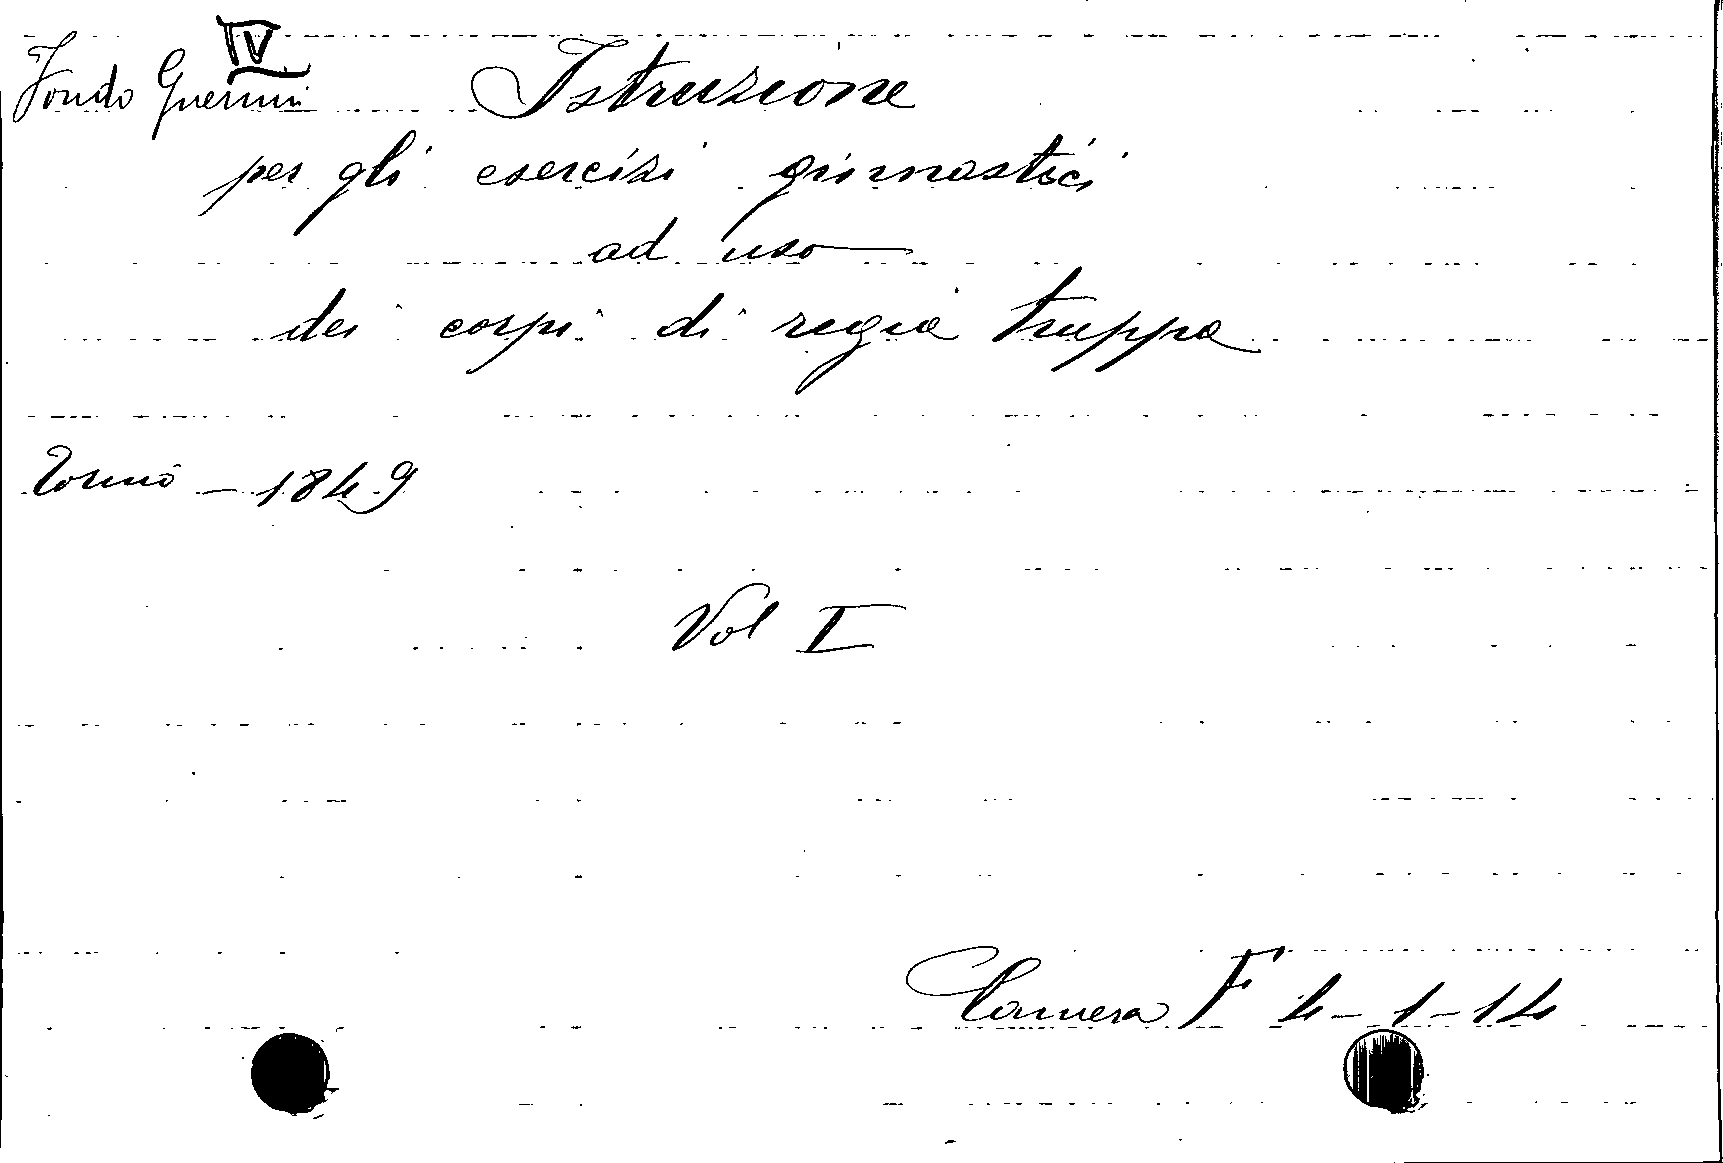 IV
Fondo Guerrini Istruzione
per gli esercizi ginnastici
ad uso
dei corpi di regia truppa
Torino - 1849
Vol I
Camera F 4-1-14